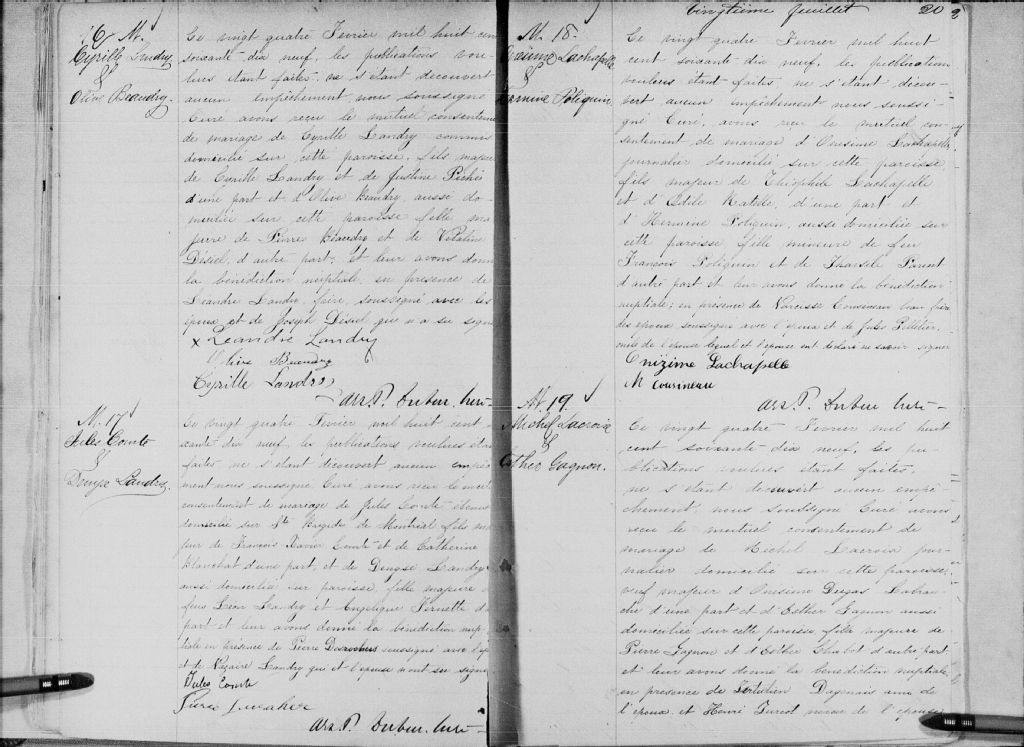 16 M.
Cyrille Landry
&
Olive Beaudry.
Ce vingt quatre Février mil huit cent
soixante dix neuf, les publications vou-
lues étant faites, ne s'étant découvert
aucun empêchement, nous soussigné
Curé avons reçu le mutuel consenteme
de mariage de Cyrille Landry commis
domicilié sur cette paroisse, fils majeu
de Cyrille Landry et de Justine Pichés
d'une part et d'Olive Beaudry, aussi do-
miciliée sur cette paroisse fille ma
jeure de Pierre Beaudry et de
Désiel, d'autre part, et leur avons donn
la bénédiction nuptiale, en présence de
Léandre Landry, frère, soussigné avec les
époux et de Joseph Désiel qui n'a su signe
x Léandre Landry
Olive Beaudry
Cyrille Landry
Curé
M. 17
Jules Comte
&
Landry.
Ce vingt quatre Février mil huit cent
xante dix neuf, les publications voulues étan
faites ne s'étant découvert aucun empêc
ment nous soussigné Curé avons reçu le mutu
consentement de mariage de Jules Comte
domicilié sur Ste Brigide de Montréal fils ma
jeur de François Xavier Comte et de Catherine
Blanchat d'une part, et de Landry
aussi domiciliée sur paroisse, fille majeure
feus Léon Landry et Angélique d'
part et leur avons donné la bénédiction nup
tiale en présence de Pierre soussigné avec l'ép
et de Nazaire Landry qui et l'épouse n'ont su signe
Jules Comte
Pierre
Curé
Vingtième feuillet 20
M. 18.
Onésime Lachapelle
&
Hermine Poliquin
Ce vingt quatre Février mil huit
cent soixante dix neuf, les publication
voulues étant faites ne s'étant décou-
vert aucun empêchement nous soussi-
gné Curé, avons reçu le mutuel con-
sentement de mariage d'Onésime Lachapelle
journalier domicilié sur cette paroisse,
fils majeur de Théophile Lachapelle
et d'Adèle Ratelle, d'une part et
d'Hermine Poliquin, aussi domiciliée sur
cette paroisse fille mineure de feu
François Poliquin et de Parent
d'autre part et leur avons donné la bénédiction
nuptiale; en présence de Narcisse Cousineau beau frère
des époux soussigné avec l'époux et de Jules Pelletier,
de l'épouse lequel et l'épouse ont déclaré ne savoir signer
Onizime Lachapelle
N Cousineau
Curé
M. 19.
Michel Lacroix
&
Esther Gagnon.
Ce vingt quatre Février mil huit
cent soixante dix neuf, les pu-
blications voulues étant faites,
ne s'étant découvert aucun empê-
chement nous soussigné Curé avons
reçu le mutuel consentement de
mariage de Michel Lacroix jour-
nalier domicilié sur cette paroisse,
veuf majeur d'Onésime
d'une part et d'Esther Gagnon aussi
domiciliée sur cette paroisse fille majeure de
Pierre Gagnon et d'Esther Chabot d'autre part
et leur avons donné la bénédiction nuptiale
en présence de Dagenais ami de
l'époux et Henri Turcot de l'épouse